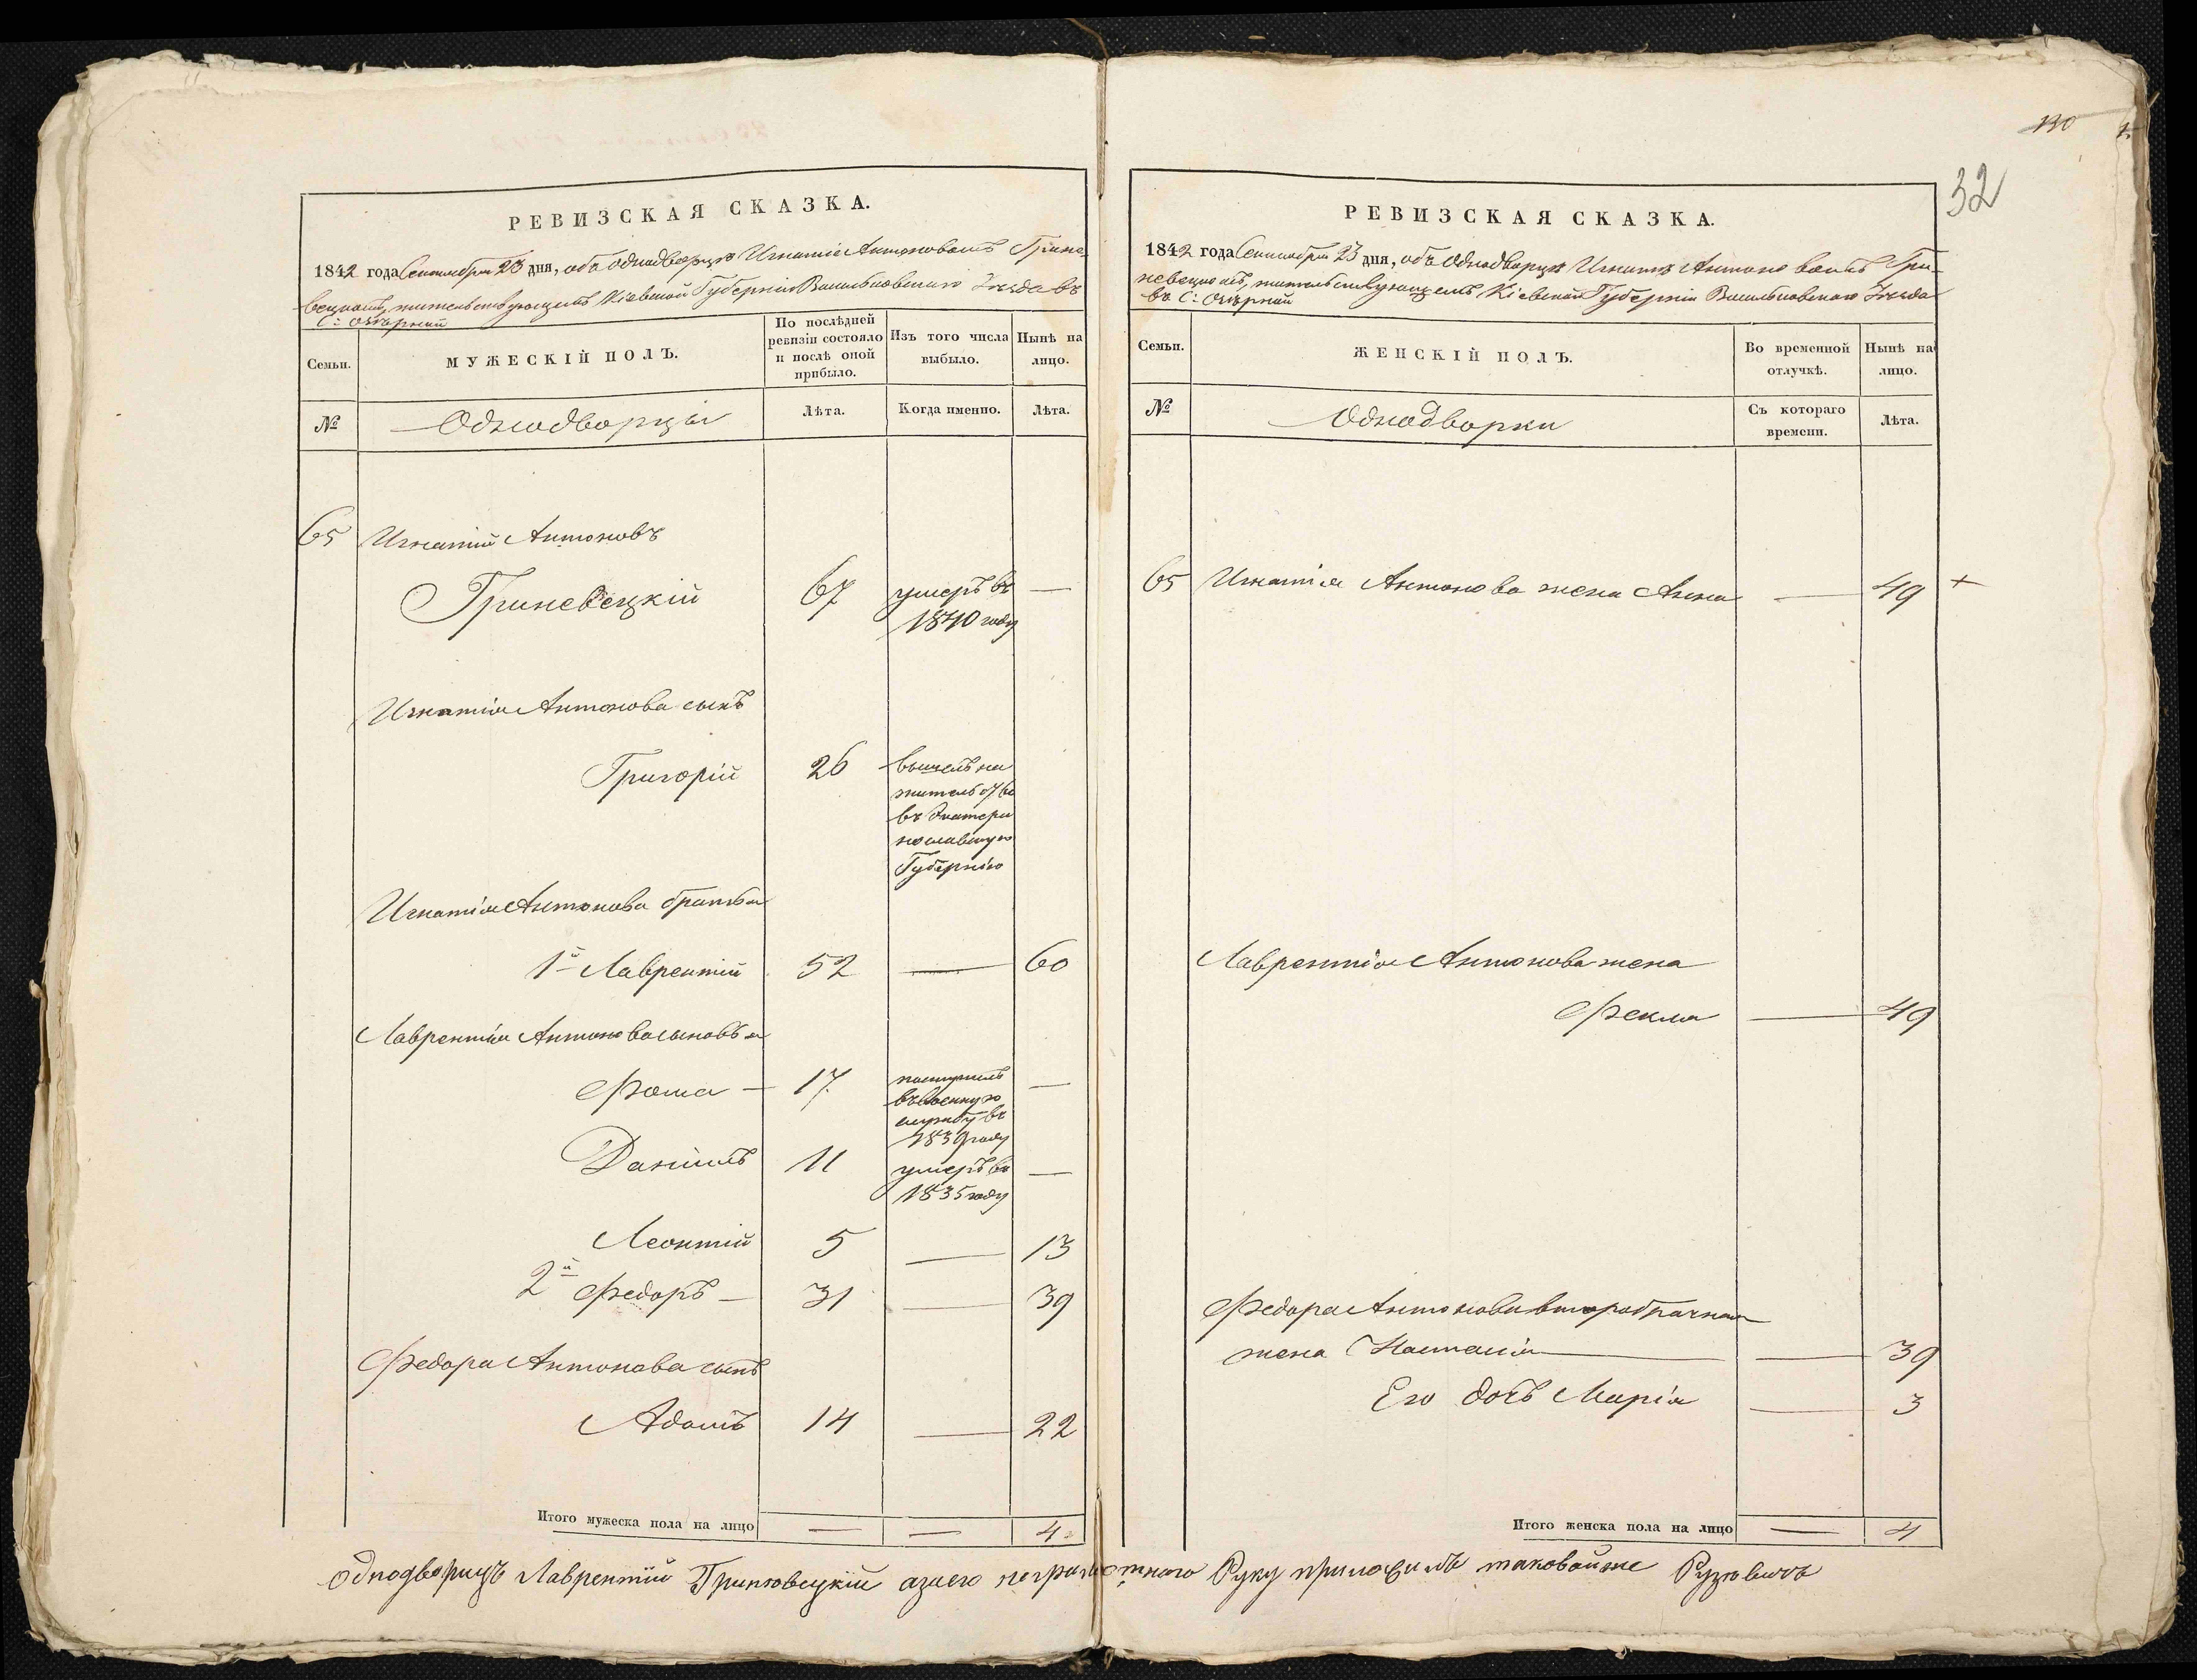 РЕВИЗСКАЯ СКАЗКА.
1842 года Сентября 23 дня, объ Однодворцѣ Игнатіѣ Антоновомъ Грине-
вецкомъ, жительствующемъ Кіевской Губерніи Васильковскаго Уѣзда въ
С: Озѣрной
Семьи.
МУЖЕСКІЙ ПОЛЪ.
По послѣдней ревизіи состояло и послѣ оной прибыло.
Изъ того числа выбыло.
Нынѣ на лицо.
№
Однодворцы
Лѣта.
Когда именно.
Лѣта.
65 Игнатій Антоновъ
Гриневецкій 67 умеръ въ —
1840 году
Игнатія Антонова сынъ
Григорій 26 вышелъ на
жительство
въ Екатери
нославскую
Губернію
Игнатія Антонова братья
1й Лаврентій 52 — 60
Лаврентія Антонова сыновья
Фома — 17 поступилъ —
въ военную
службу въ
1839 году
Даніилъ 11 умеръ въ —
1835 году
Леонтій 5 — 13
2й Федоръ — 31 — 39
Федора Антонова сынъ
Адамъ 14 — 22
Итого мужеска пола на лицо — — 4
130
32
РЕВИЗСКАЯ СКАЗКА.
1842 года Сентября 23 дня, объ Однодворцѣ Игнатіѣ Антоновомъ Гри-
невецкомъ, жительствующемъ Кіевской Губерніи Васильковскаго Уѣзда
въ С: Озѣрной
Семьи.
ЖЕНСКІЙ ПОЛЪ.
Во временной отлучкѣ.
Нынѣ на лицо.
№
Однодворки
Съ котораго времени.
Лѣта.
65 Игнатія Антонова жена Анна — 49 +
Лаврентія Антонова жена
Фекла — 49
Федора Антонова второбрачная
жена Настасія — — 39
Его дочь Марія — 3
Итого женска пола на лицо — 4
однодворецъ Лаврентий Гриневецкий а за его неграмотного Руку приложилъ таковойже